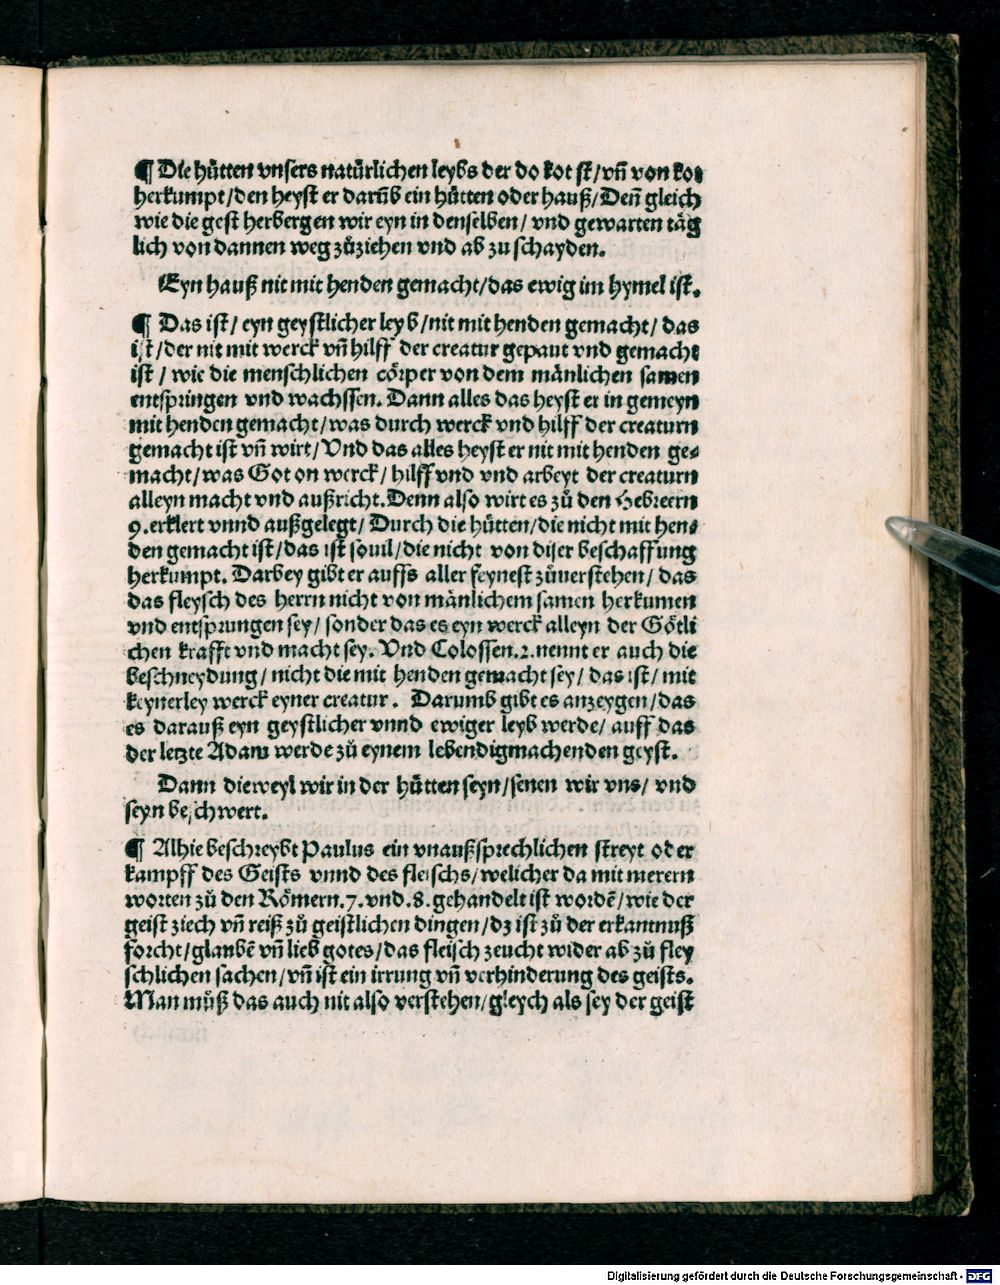 ¶ Die hütten vnsers natürlichen leybs der do kot ist/vñ von kot
herkumpt/den heyst er darũb ein hütten oder hauß/Deñ gleich
wie die gest herbergen wir eyn in denselben/ vnd gewarten täg
lich von dannen weg zůziehen vnd ab zu schayden.
Eyn hauß nit mit henden gemacht/das ewig im hymel ist.
¶ Das ist/ eyn geystlicher leyb/nit mit henden gemacht/ das
ist/der nit mit werck vñ hilff der creatur gepaut vnd gemacht
ist / wie die menschlichen cörper von dem mänlichen samen
entspringen vnd wachssen. Dann alles das heyst er in gemeyn
mit henden gemacht/was durch werck vnd hilff der creaturn
gemacht ist vñ wirt/Vnd das alles heyst er nit mit henden ge⸗
macht/was Got on werck/ hilff vnd vnd arbeyt der creaturn
alleyn macht vnd außricht.Denn also wirt es zů den Hebreern
9.erklert vnnd außgelegt/ Durch die hütten/die nicht mit hen⸗
den gemacht ist/das ist souil/die nicht von diser beschaffung
herkumpt. Darbey gibt er auffs aller feynest zůuerstehen/ das
das fleysch des herrn nicht von mänlichem samen herkumen
vnd entsprungen sey/ sonder das es eyn werck alleyn der Götli
chen krafft vnd macht sey. Vnd Colossen.2.nennt er auch die
beschneydung/nicht die mit henden gemacht sey/ das ist/ mit
keynerley werck eyner creatur . Darumb gibt es anzeygen/das
es darauß eyn geystlicher vnnd ewiger leyb werde/ auff das
der letzte Adam werde zů eynem lebendigmachenden geyst.
Dann dieweyl wir in der hütten seyn/senen wir vns/ vnd
seyn beschwert.
¶ Alhie beschreybt Paulus ein vnaußsprechlichen streyt oder
kampff des Geists vnnd des fleischs/welicher da mit merern
worten zů den Römern.7.vnd.8.gehandelt ist wordẽ/wie der
geist ziech vñ reiß zů geistlichen dingen/dz ist zů der erkantnuß
forcht/glaubẽ vñ lieb gotes/das fleisch zeucht wider ab zů fley
schlichen sachen/vñ ist ein irrung vñ verhinderung des geists.
Man můß das auch nit also verstehen/gleych als sey der geist
Digitalisierung gefördert durch die Deutsche Forschungsgemeinschaft - DFG